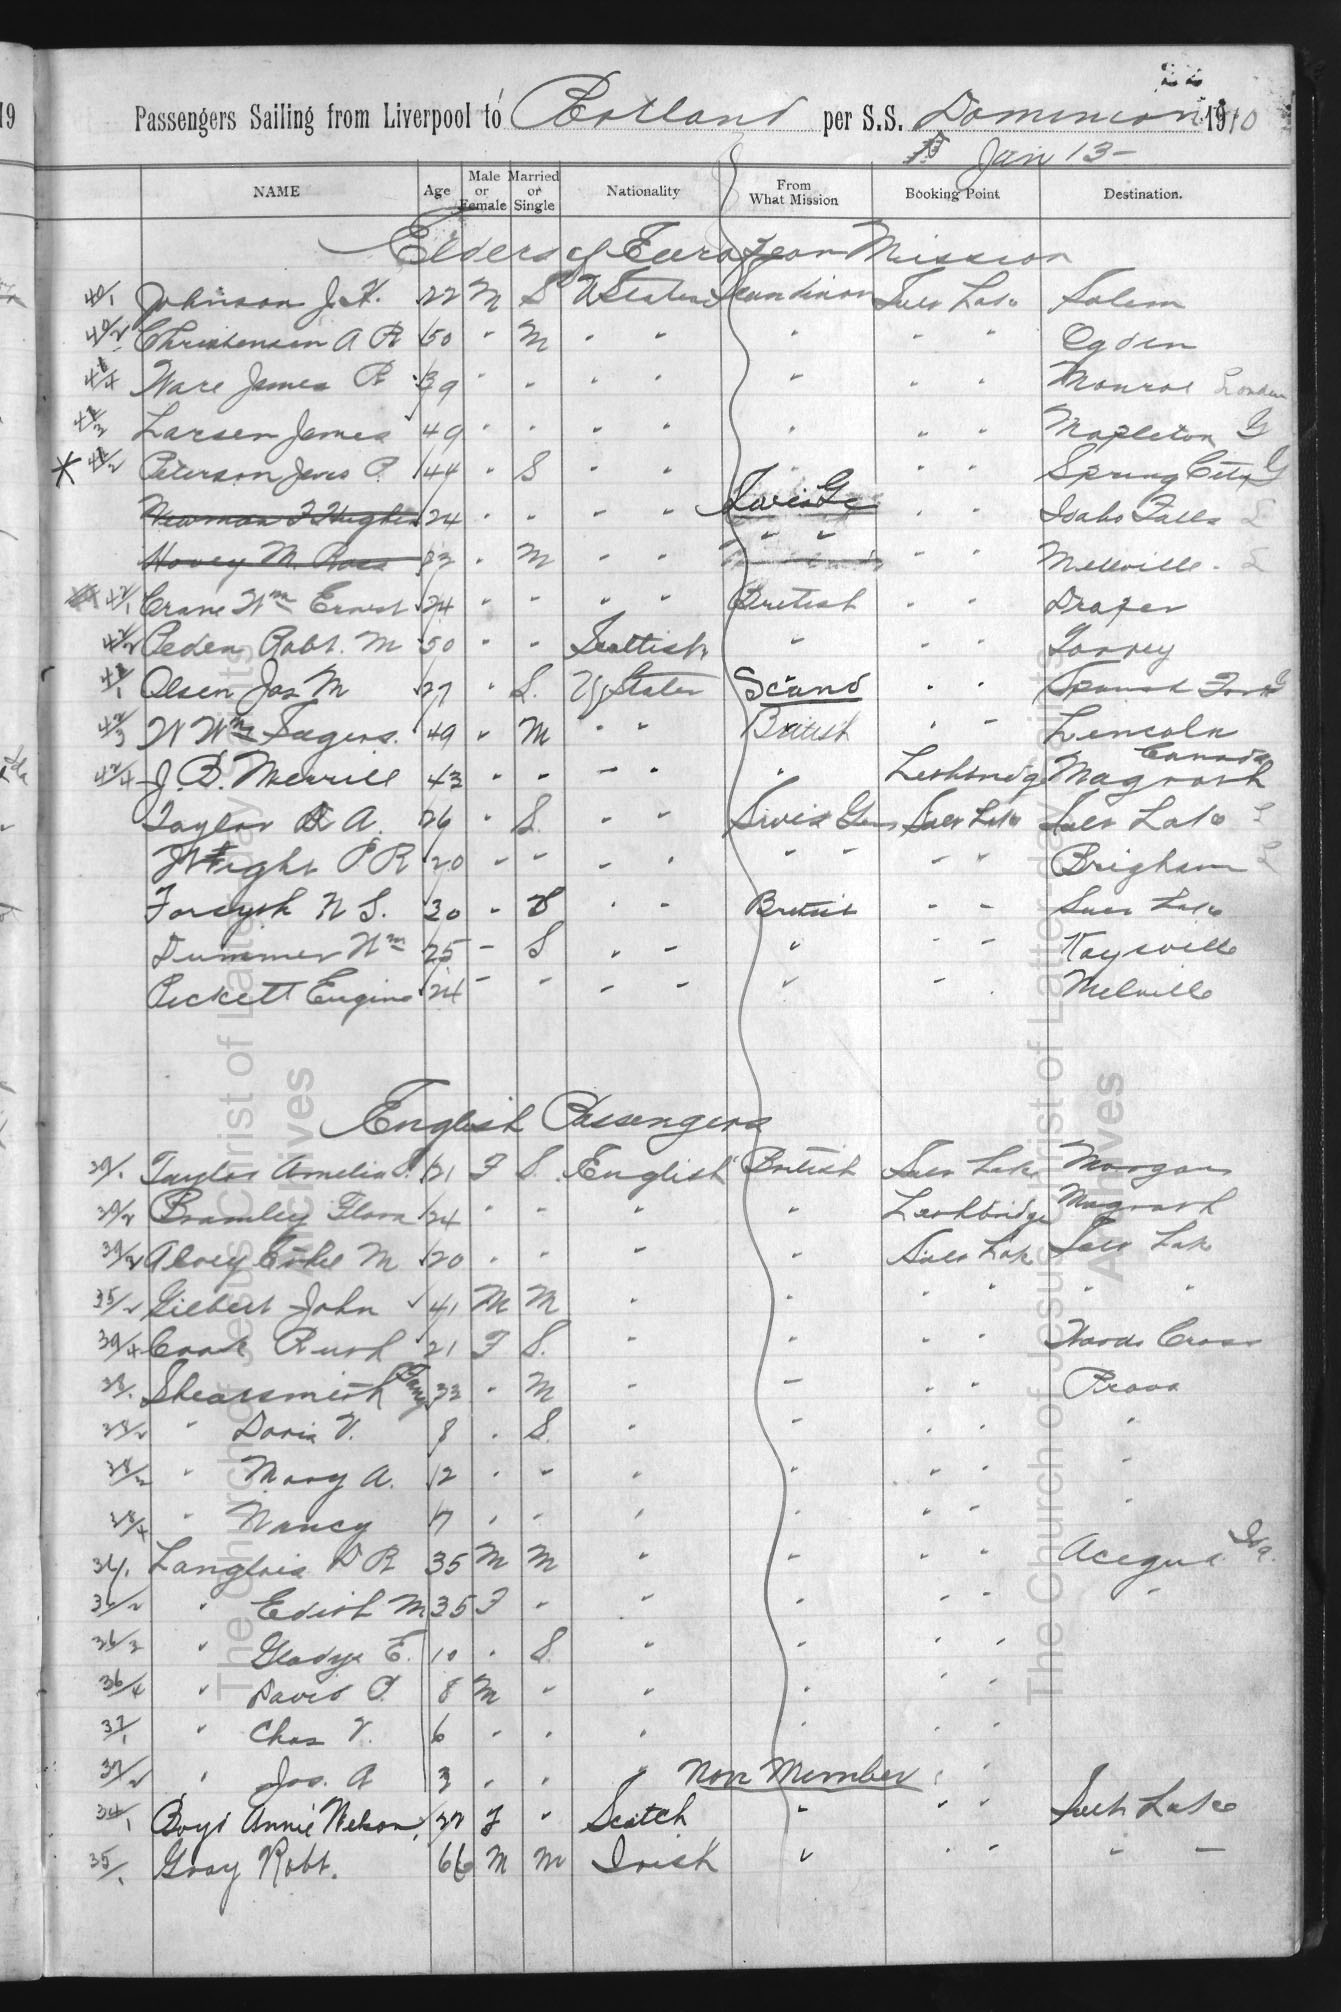 22
Passengers Sailing from Liverpool to Portland per S.S. Dominion 1910
Jan 13 -
NAME Age Male or Female Married or Single Nationality From What Mission Booking Point Destination.
Elders of European Mission
40/1 Johnson J. H. 22 M S U States Scandinavn Salt Lake Salem
40/2 Christensen A R 50 " M " " " " " Ogden
41/4 Ware James R 39 " " " " " " " Monroe London
41/3 Larsen James 49 " " " " " " " Mapleton G
* 41/2 Peterson Jens P. 44 " S " " " " " Spring City G
Newman F Hughes 24 " " " " Swiss Ge " " Idaho Falls L
Hovey M. Ross 23 " M " " " " " " Mellville. L
42/1 Crane Wm Ernest 24 " " " " British " " Draper
42/2 Peden Robt. M 50 " " Scottish " " " Torrey
41/1 Olsen Jas M 27 " S. U States Scand " " Spanish Fork G
42/3 W Wm Seegers. 49 " M " " British " " Lincoln
42/4 J. B. Merrill 43 " " " " " Lethbridge Magrath Canada
Taylor A. 26 " S. " " Swiss Ger Salt Lake Salt Lake L
Wright P R 20 " " " " " " " " Brigham L
Forsyth N S. 30 " S " " British " " Salt Lake
Dummer Wm 25 " S " " " " " Kaysville
Pickett Eugine 24 " " " " " " " Melville
English Passengers
39/1 Taylor Amelia S. 21 F S. English British Salt Lake Morgan
39/2 Bramley Flora 24 " " " " Lethbridge Magrath
39/3 Alvey Ethel M 20 " " " " Salt Lake Salt Lake
35/2 Gilbert John 41 M M " " " " " "
39/4 Cook Ruth 21 F S. " " " " Woods Cross
38/1 Shearsmith Fanny 33 " M " " " " Provo
38/2 " Doris V. 8 " S. " " " " "
38/3 " Mary A. 12 " " " " " " "
38/4 " Nancy 7 " " " " " " "
36/1 Langlois D R 35 M M " " " " Acequia Ida.
36/2 " Edith M 35 F " " " " " "
36/3 " Gladys E. 10 " S. " " " "
36/4 " David P. 8 M " " " " "
37/1 " Chas V. 6 " " " " " "
37/2 " Jos. A 3 " " " Non Member " "
34/1 Boyd Annie Nelson 22 F " Scotch " " " Salt Lake
35/1 Gray Robt. 66 M M Irish " " " " "
The Church of Jesus Christ of Latter-day Saints
Archives
The Church of Jesus Christ of Latter-day Saints
Archives